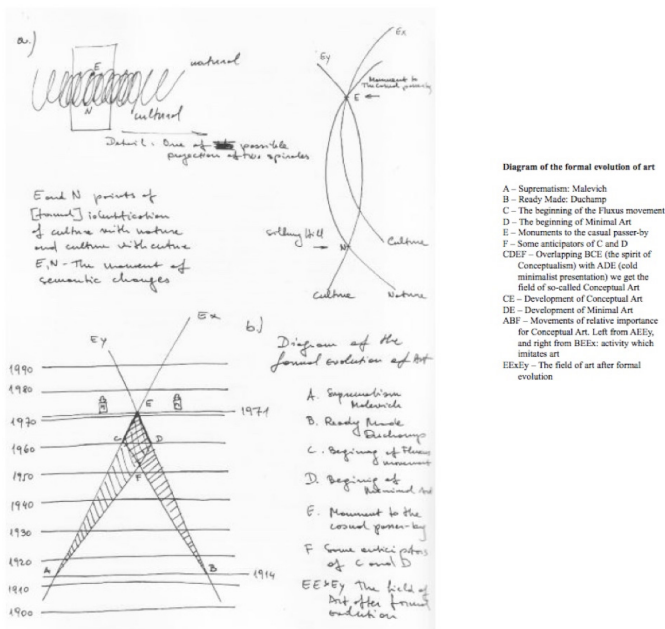 a.)
natural
E
N
cultural
Detail: One of possible
projection of two spirales
E and N points of
[formal] identification
of culture with nature
and culture with cuture
E, N - The moment of
semantic changes
Ex
Ey
Monument to
The casual passer-by
E
Selling Hill
N
Culture
Culture
Nature
b)
Diagram of the
formal evolution of Art
Ex
Ey
1990
1980
E
1970
1971
C
D
1960
F
1950
1940
1930
1920
A
B
1914
1910
1900
A. Suprematism
Malevich
B. Ready Made
Duchamp
C. Begining of Fluxus
movement
D. Begining of
Minimal Art
E. Monument to the
casual passer-by
F Some anticipators
of C and D
EExEy The field of
Art after formal
evolution
Diagram of the formal evolution of art
A – Suprematism: Malevich
B – Ready Made: Duchamp
C – The beginning of the Fluxus movement
D – The beginning of Minimal Art
E – Monuments to the casual passer-by
F – Some anticipators of C and D
CDEF – Overlapping BCE (the spirit of
Conceptualism) with ADE (cold
minimalist presentation) we get the
field of so-called Conceptual Art
CE – Development of Conceptual Art
DE – Development of Minimal Art
ABF – Movements of relative importance
for Conceptual Art. Left from AEEy,
and right from BEEx: activity which
imitates art
EExEy – The field of art after formal
evolution